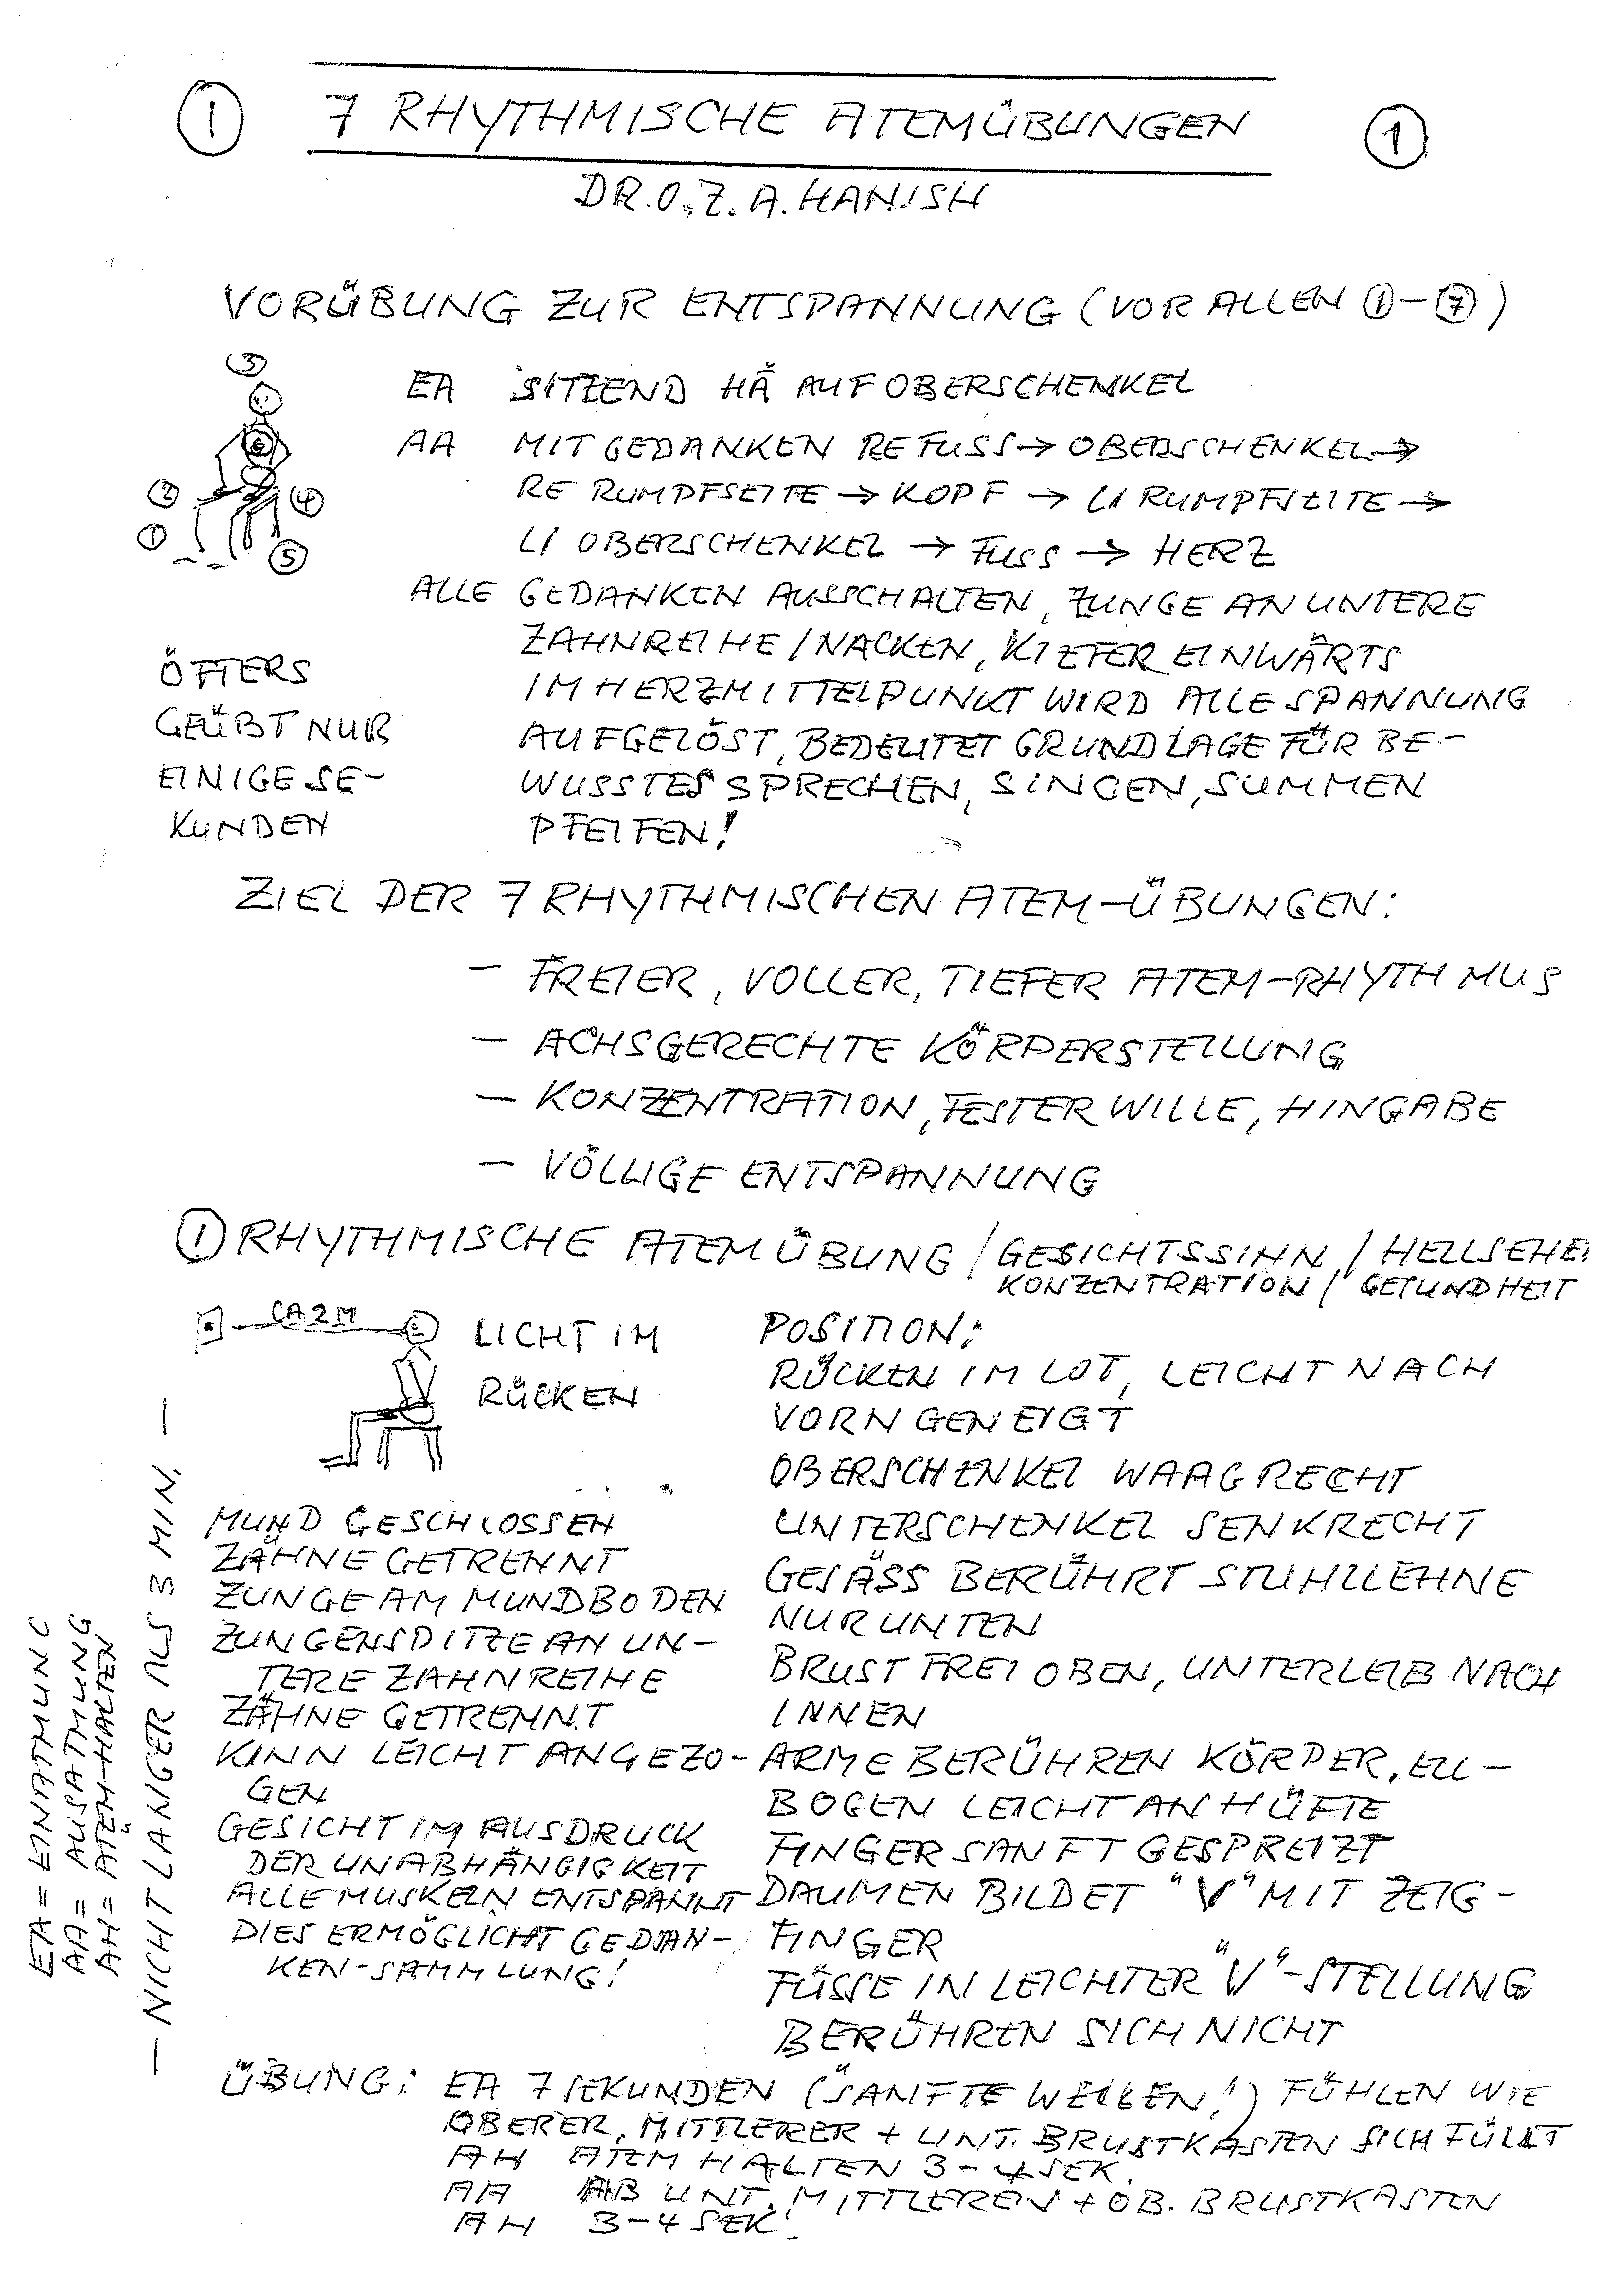 ① 7 RHYTHMISCHE ATEMÜBUNGEN ①
DR. O. Z. A. HANISH
VORÜBUNG ZUR ENTSPANNUNG (VOR ALLEN ①-⑦)
③
⑥
② ④
① ⑤
EA SITZEND HÄ AUF OBERSCHENKEL
AA MIT GEDANKEN RE FUSS → OBERSCHENKEL →
RE RUMPFSEITE → KOPF → LI RUMPFSEITE →
LI OBERSCHENKEL → FUSS → HERZ
ALLE GEDANKEN AUSSCHALTEN, ZUNGE AN UNTERE
ZAHNREIHE / NACKEN, KIEFER EINWÄRTS
IM HERZMITTELPUNKT WIRD ALLE SPANNUNG
AUFGELÖST, BEDEUTET GRUNDLAGE FÜR BE-
WUSSTES SPRECHEN, SINGEN, SUMMEN
PFEIFEN!
ÖFTERS
GEÜBT NUR
EINIGE SE-
KUNDEN
ZIEL DER 7 RHYTHMISCHEN ATEM-ÜBUNGEN:
- FREIER, VOLLER, TIEFER ATEM-RHYTHMUS
- ACHSGERECHTE KÖRPERSTELLUNG
- KONZENTRATION, FESTER WILLE, HINGABE
- VÖLLIGE ENTSPANNUNG
① RHYTHMISCHE ATEMÜBUNG / GESICHTSSINN / HELLSEHEN
KONZENTRATION / GESUNDHEIT
CA 2 M
LICHT IM
RÜCKEN
MUND GESCHLOSSEN
ZÄHNE GETRENNT
ZUNGE AM MUNDBODEN
ZUNGENSPITZE AN UN-
TERE ZAHNREIHE
ZÄHNE GETRENNT
KINN LEICHT ANGEZO-
GEN
GESICHT IM AUSDRUCK
DER UNABHÄNGIGKEIT
ALLE MUSKELN ENTSPANNT
DIES ERMÖGLICHT GEDAN-
KEN-SAMMLUNG!
POSITION:
RÜCKEN IM LOT, LEICHT NACH
VORN GENEIGT
OBERSCHENKEL WAAGRECHT
UNTERSCHENKEL SENKRECHT
GESÄSS BERÜHRT STUHLLEHNE
NUR UNTEN
BRUST FREI OBEN, UNTERLEIB NACH
INNEN
ARME BERÜHREN KÖRPER, ELL-
BOGEN LEICHT AN HÜFTE
FINGER SANFT GESPREIZT
DAUMEN BILDET "V" MIT ZEIG-
FINGER
FÜSSE IN LEICHTER "V"-STELLUNG
BERÜHREN SICH NICHT
EA = EINATMUNG
AA = AUSATMUNG
AH = ATEM-HALTEN
- NICHT LÄNGER ALS 3 MIN. -
ÜBUNG: EA 7 SEKUNDEN ("SANFTE WELLEN!") FÜHLEN WIE
OBERER, MITTLERER + UNT. BRUSTKASTEN SICH FÜLLT
AH ATEM HALTEN 3-4 SEK.
AA AB UNT. MITTLEREN + OB. BRUSTKASTEN
AH 3-4 SEK.